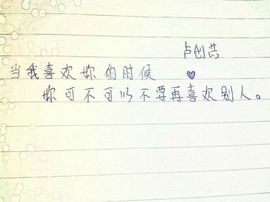 卢创芸
当我喜欢妳的时候
妳可不可以不要再喜欢别人。